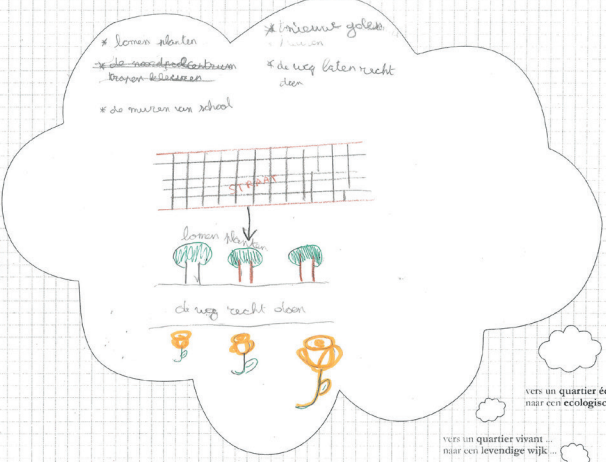 * bomen planten
* de noordpolcentrum
trapen kleuren
* de muren van school
* nieuwe
* de weg laten recht
doen
STRAAT
bomen planten
de weg recht doen
vers un quartier
naar een ecologisc
vers un quartier vivant ...
naar een levendige wijk ...